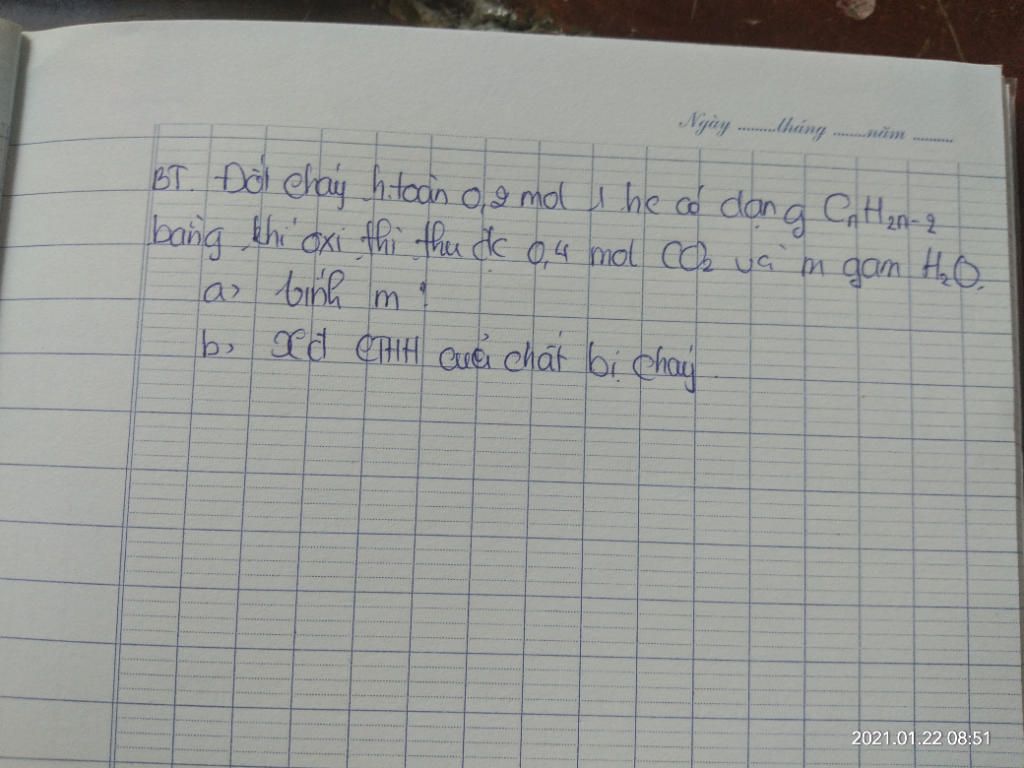 Ngày .........tháng ........năm .........
BT. Đốt cháy h.toàn 0,2 mol 1 hc có dạng CₙH₂ₙ₋₂
bằng khí oxi thì thu đc 0,4 mol CO₂ và m gam H₂O.
a, tính m?
b, xđ CTHH của chất bị cháy.
2021.01.22 08:51